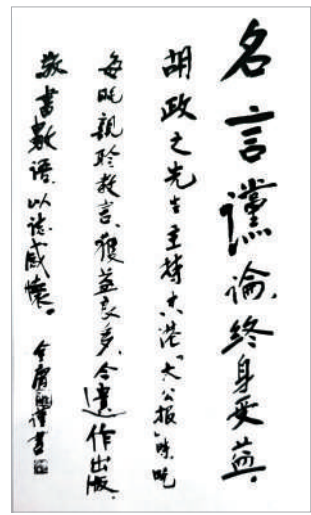 名言讜論,終身受益。
胡政之先生主持本港「大公報」時,晚
每晚親聆教言,獲益良多,今遺作出版,
敬書數語,以誌感懷。 金庸 謹書